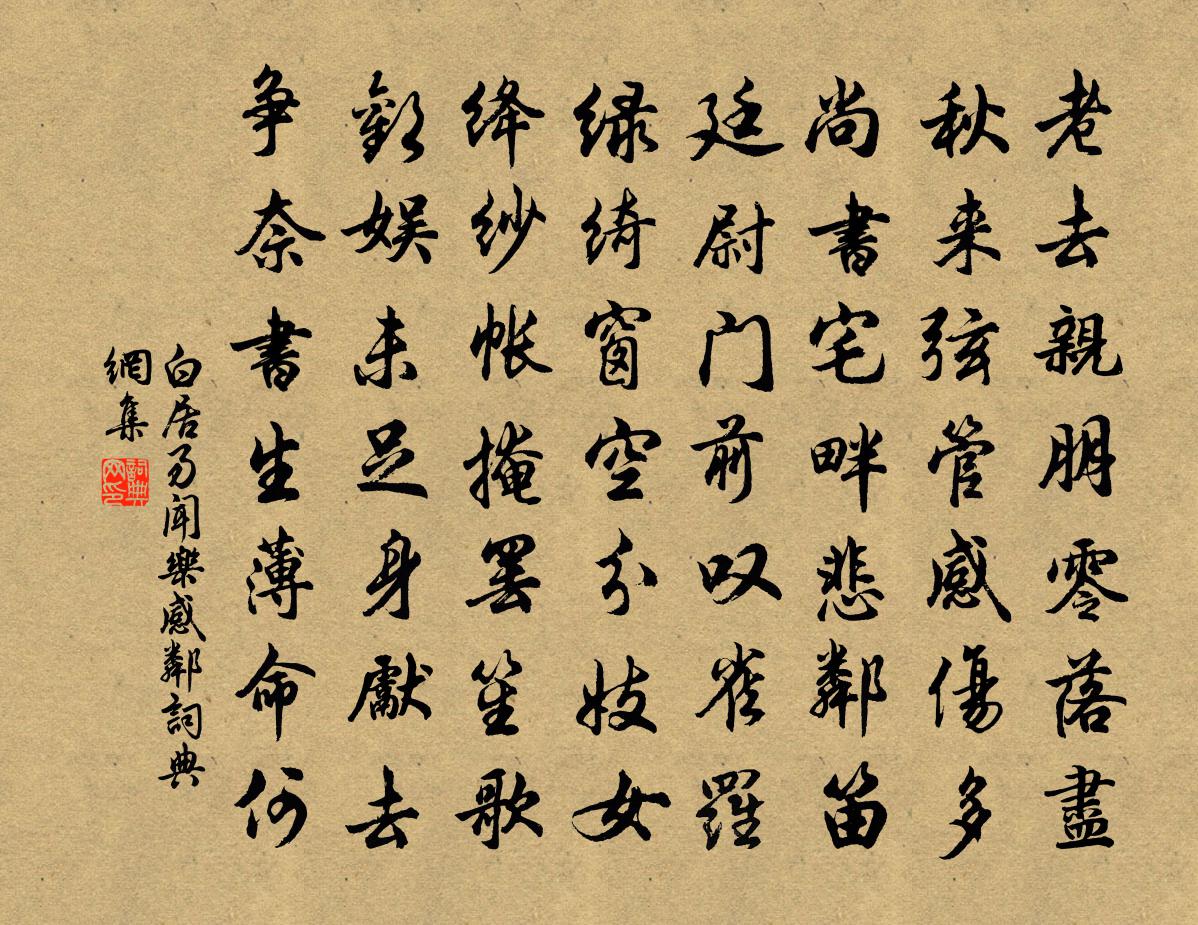 老去親朋零落盡
秋来弦管感傷多
尚書宅畔悲鄰笛
廷尉门前叹雀羅
緑綺窗空分妓女
绛纱帐掩罢笙歌
歡娱未足身獻去
争奈書生薄命何
白居易聞樂感鄰詞典
網集
詞典网印